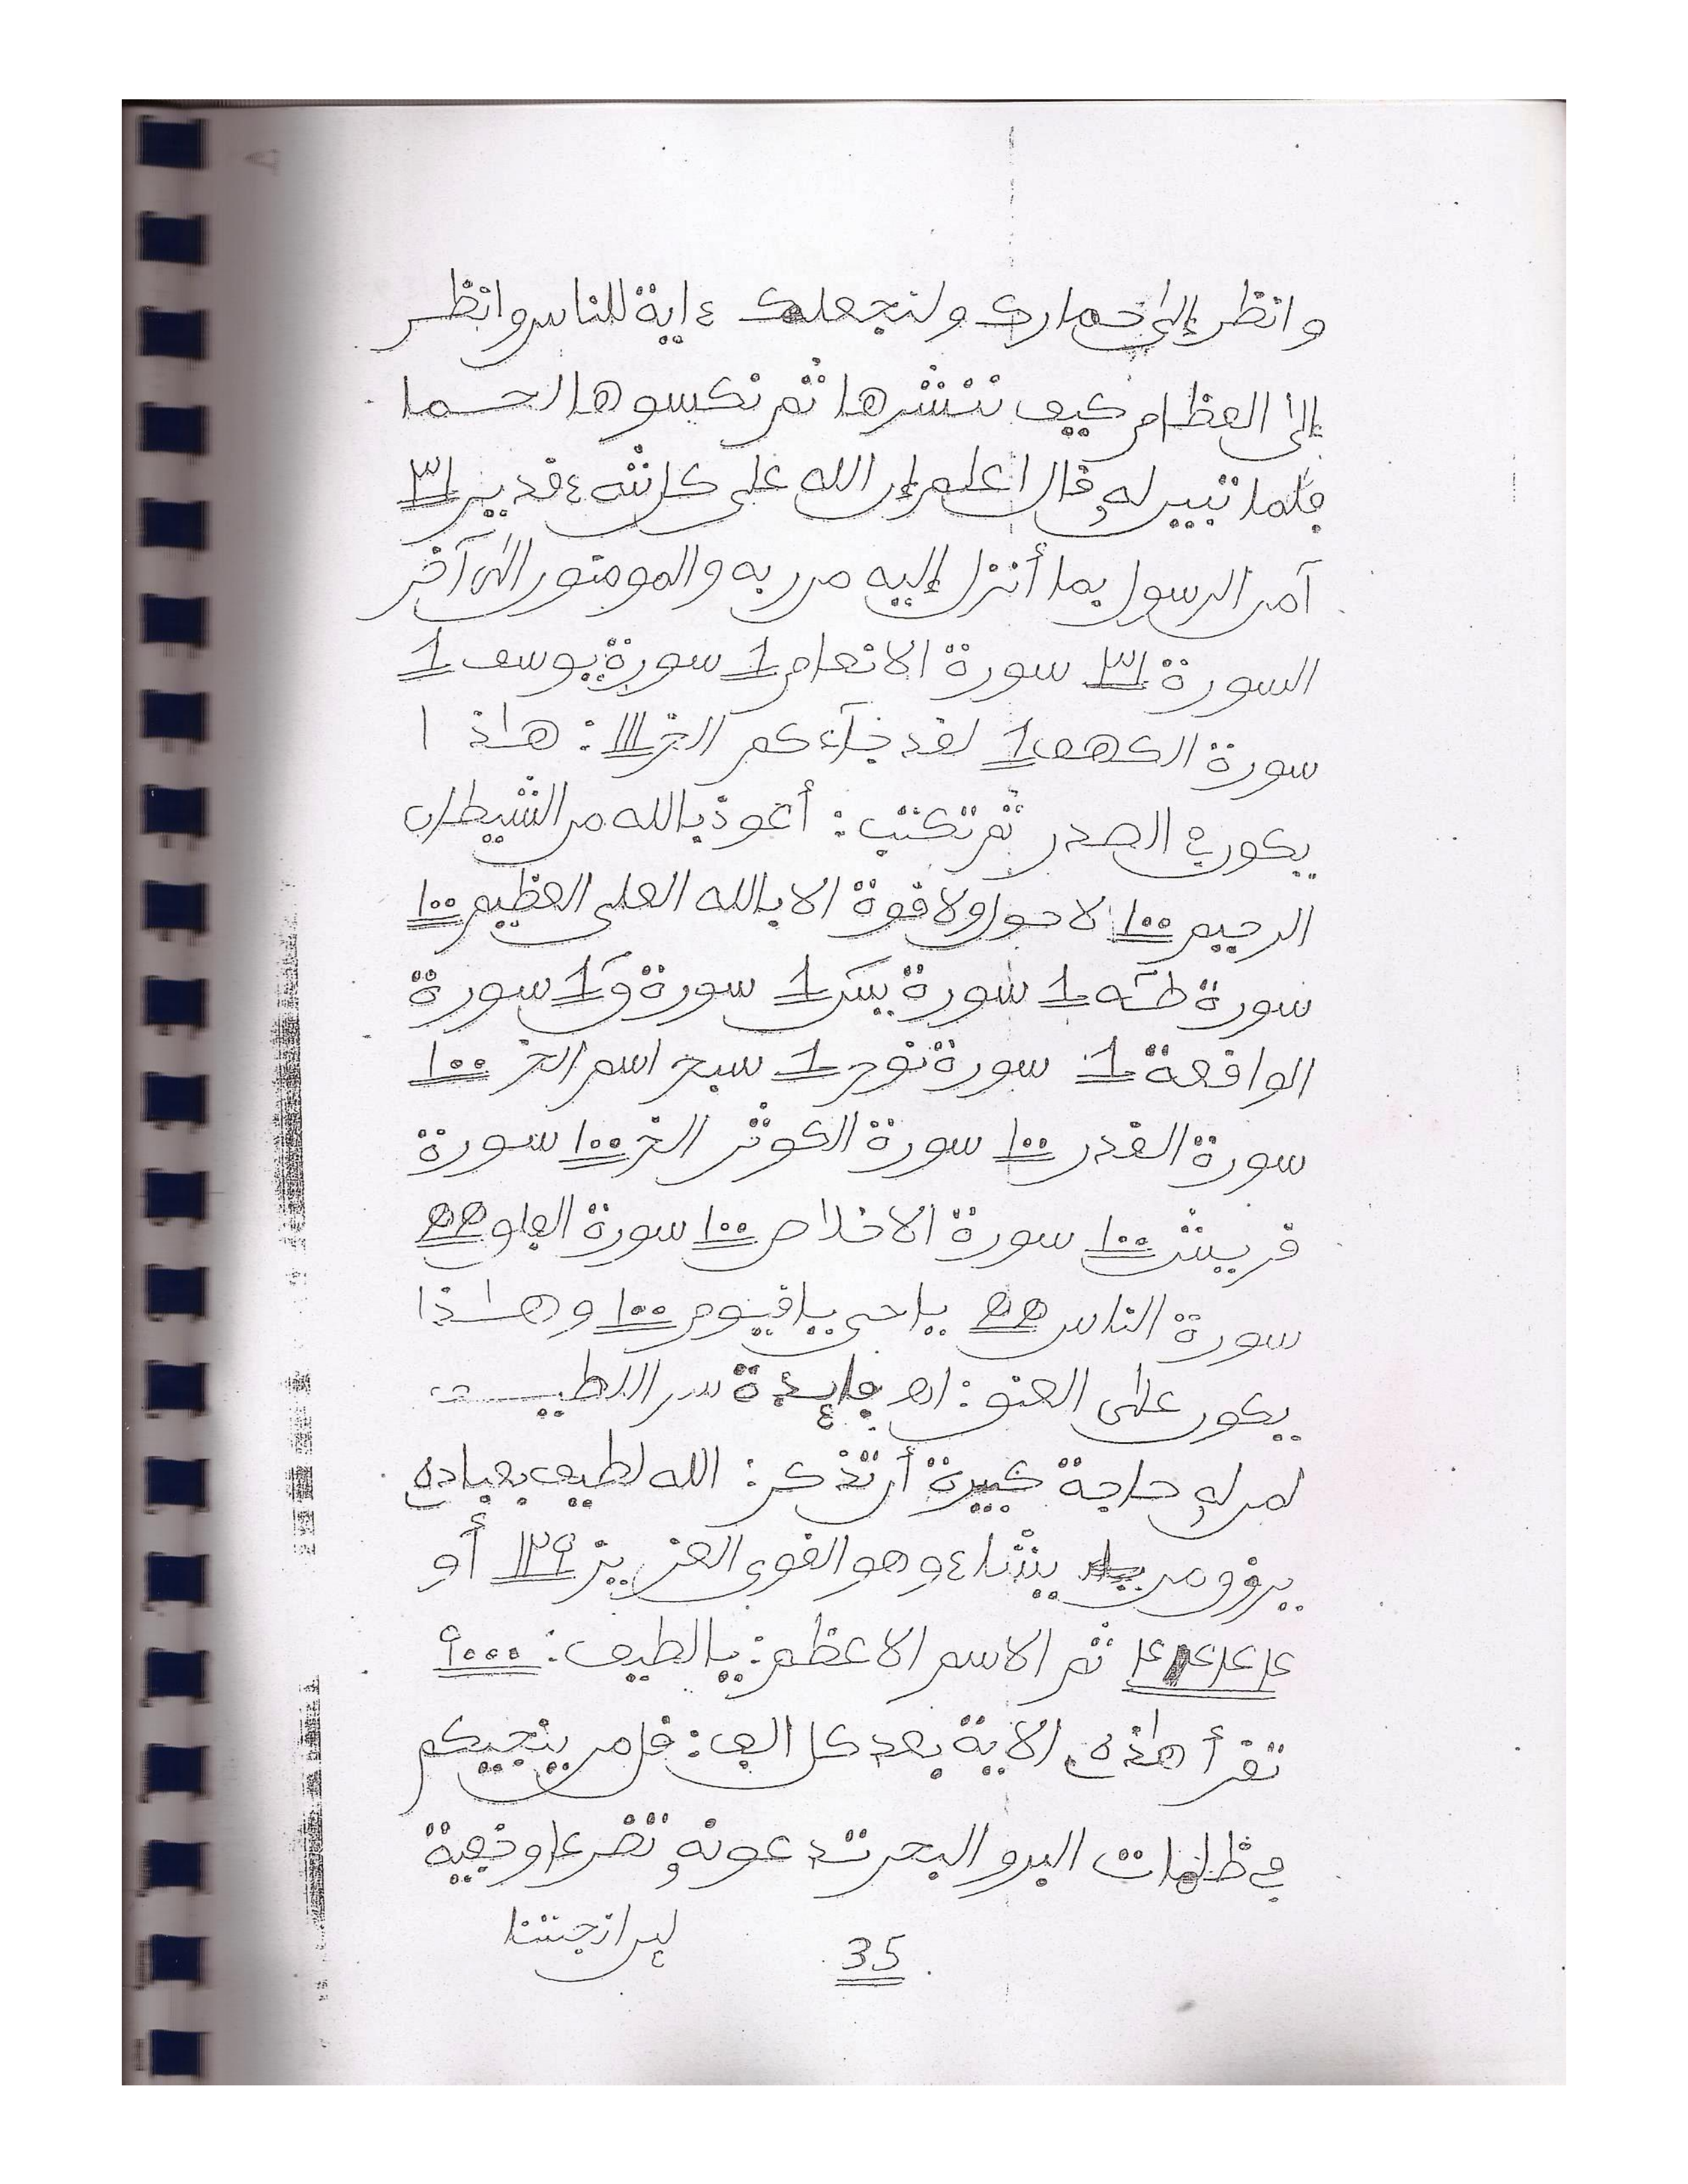 وانظر إلى حمارك ولنجعلك ءاية للناس وانظر
إلى العظام كيف ننشرها ثم نكسوها لحما
فلما تبين له قال اعلم إن الله على كل شےء قدير ٣١
آمن الرسول بما أنزل إليه من ربه والمومنون الى آخر
السورة ٣١ سورة الانعام 1 سورة يوسف 1
سورة الكهف 1 لقد جآءكم الخ ااا : هاذا
يكون في الصدر ثم تكتب : أعوذ بالله من الشيطان
الرجيم ١٠٠ لا حول ولا قوة الا بالله العلي العظيم ١٠٠
سورة طه 1 سورة يس 1 سورة ق 1 سورة
الواقعة 1 سورة نوح 1 سبح اسم الخ ١٠٠
سورة القدر ١٠٠ سورة الكوثر الخ ١٠٠ سورة
قريش ١٠٠ سورة الاخلاص ١٠٠ سورة الفلق
سورة الناس يا حي يا قيوم ١٠٠ وهاذا
يكون على العنق : اهـ فايدة سر اللطيف
لمن له حاجة كبيرة أن تذكر : الله لطيف بعباده
يرزق من يشاء وهو القوي العزيز ١٢٩ أو
ثم الاسم الاعظم : يا لطيف : ٩٠٠٠
تقرأ هاذه الاية بعد كل الف : قل من ينجيكم
في ظلمات البر والبحر تدعونه تضرعا وخفية
لين انجيتنا
35